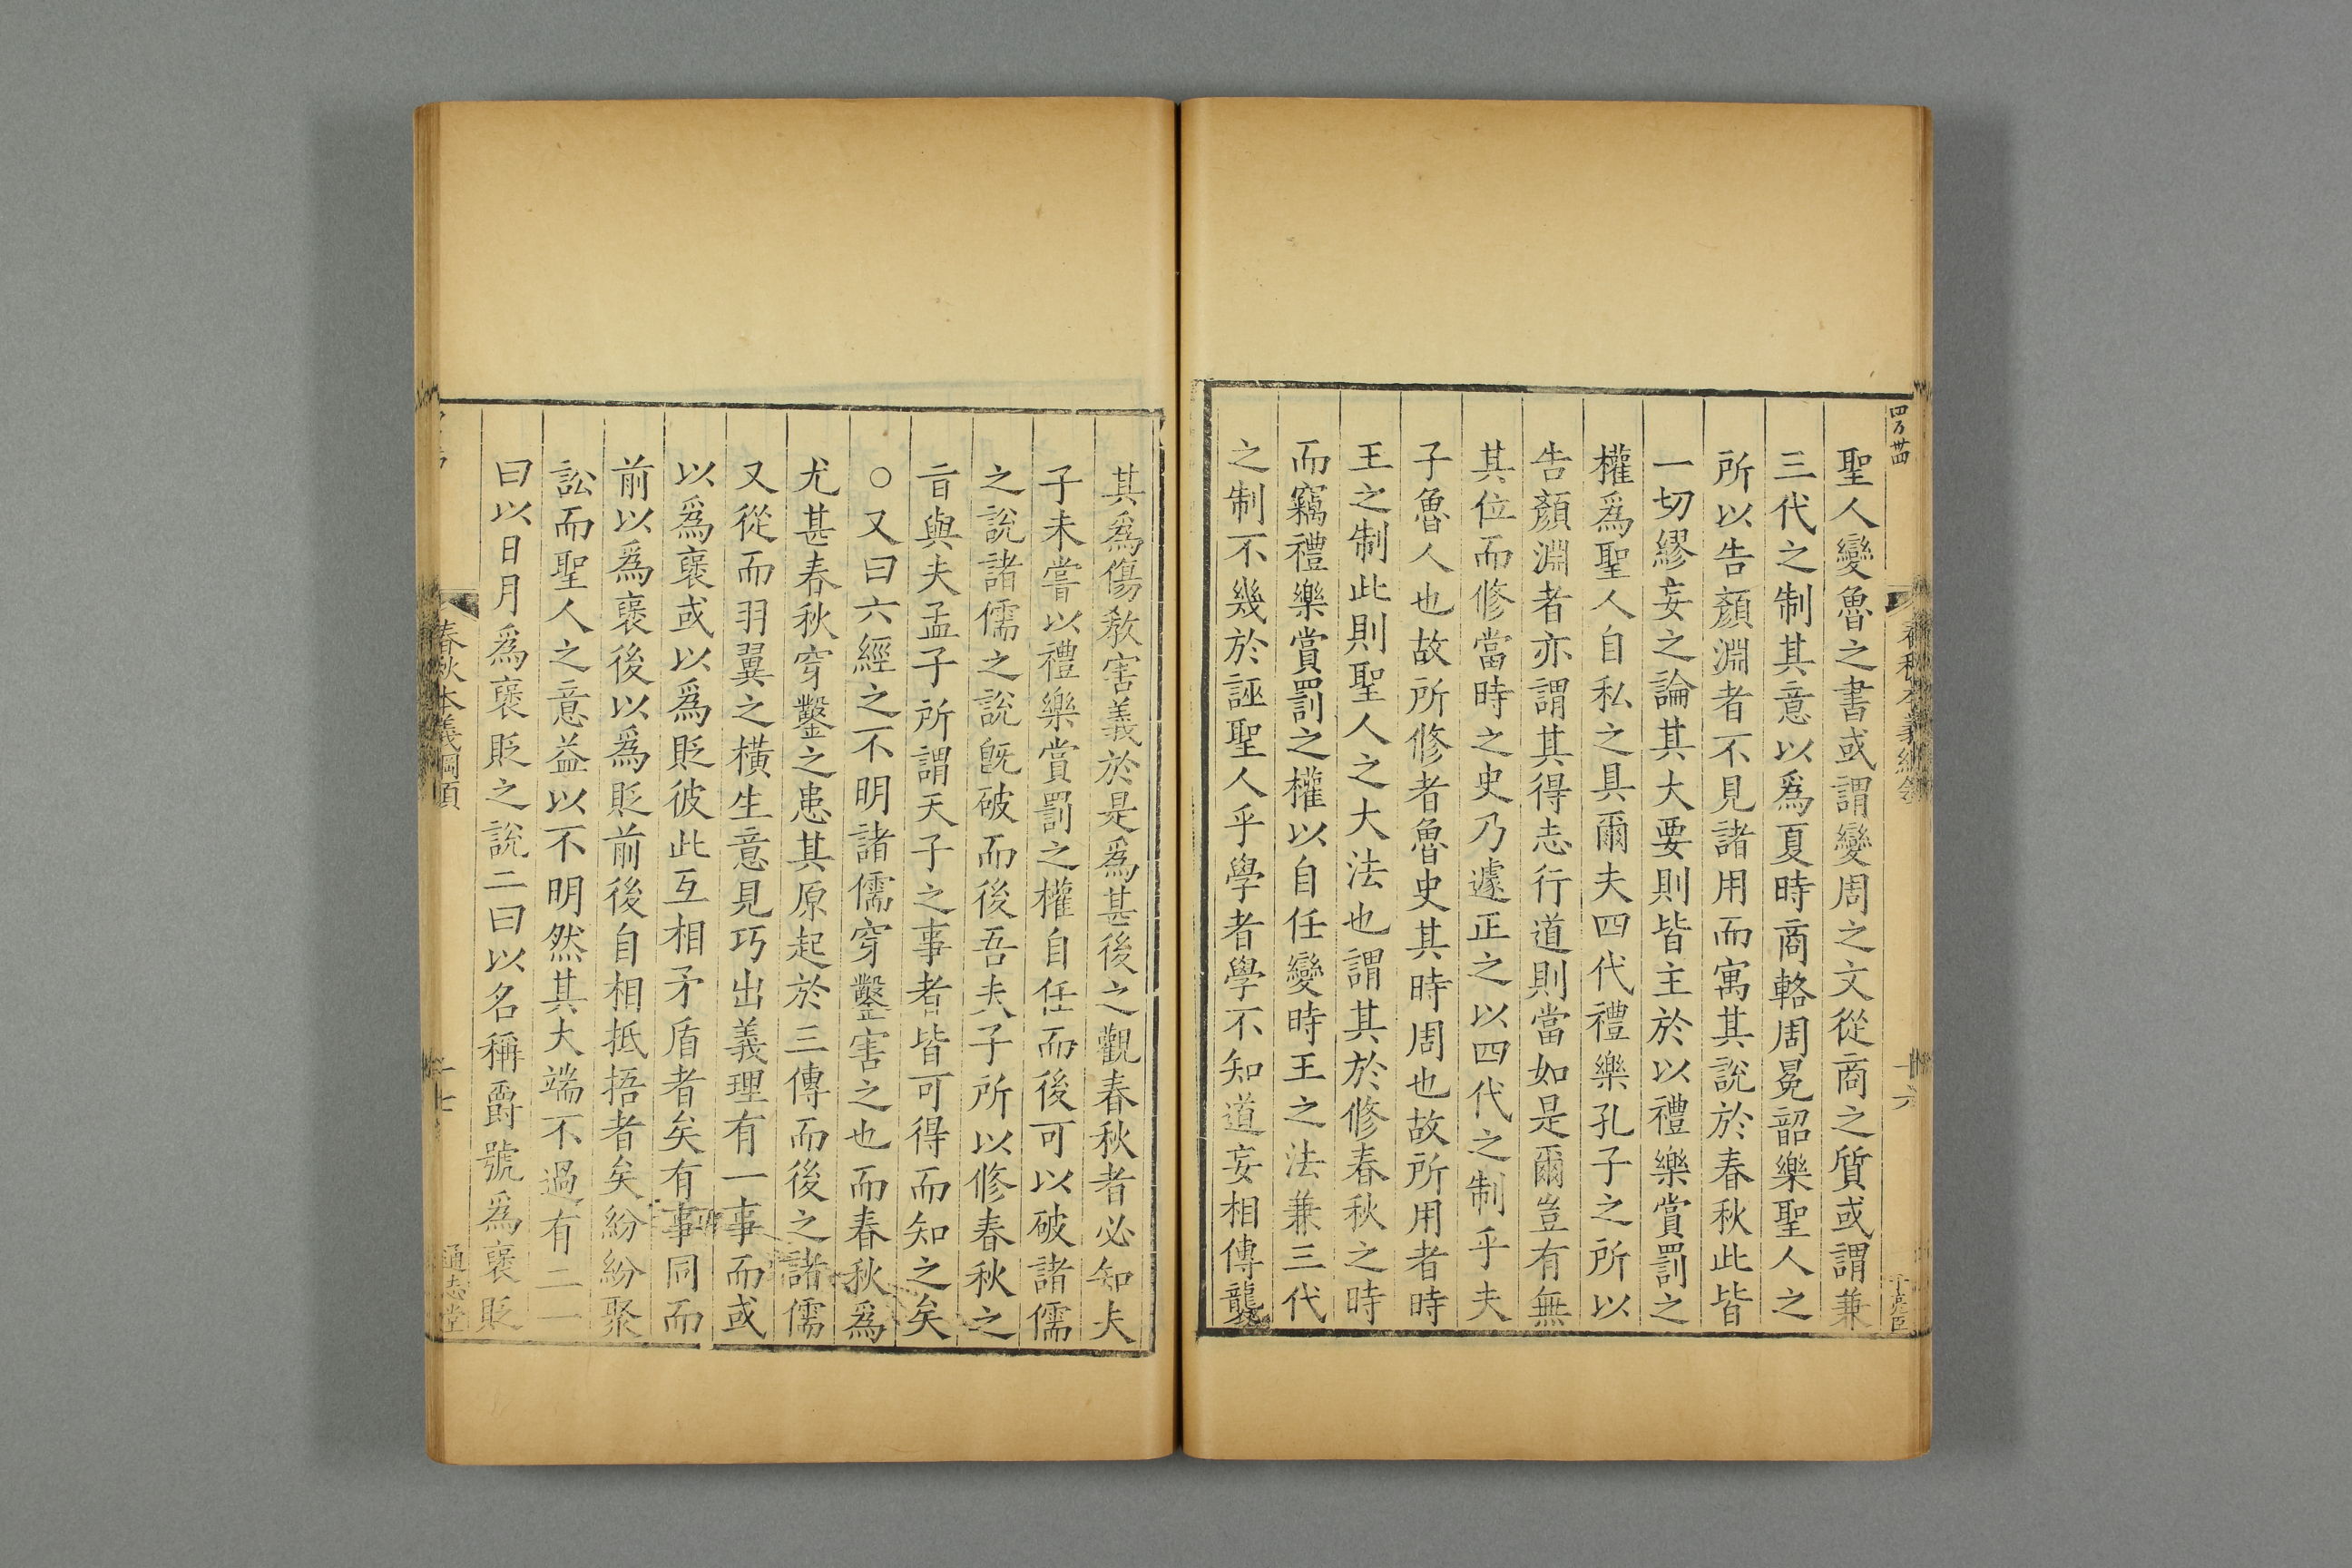 四百卅四
春秋本義綱領
十六
聖人變魯之書或謂變周之文從商之質或謂兼
三代之制其意以爲夏時商輅周冕韶樂聖人之
所以告顏淵者不見諸用而寓其說於春秋此皆
一切繆妄之論其大要則皆主於以禮樂賞罰之
權爲聖人自私之具爾夫四代禮樂孔子之所以
告顏淵者亦謂其得志行道則當如是爾豈有無
其位而修當時之史乃遽正之以四代之制乎夫
子魯人也故所修者魯史其時周也故所用者時
王之制此則聖人之大法也謂其於修春秋之時
而竊禮樂賞罰之權以自任變時王之法兼三代
之制不幾於誣聖人乎學者學不知道妄相傳襲
其爲傷教害義於是爲甚後之觀春秋者必知夫
子未嘗以禮樂賞罰之權自任而後可以破諸儒
之說諸儒之說旣破而後吾夫子所以修春秋之
旨與夫孟子所謂天子之事者皆可得而知之矣
○又曰六經之不明諸儒穿鑿害之也而春秋爲
尤甚春秋穿鑿之患其原起於三傳而後之諸儒
又從而羽翼之橫生意見巧出義理有一事而或
以爲襃或以爲貶彼此互相矛盾者矣有事同而
前以爲襃後以爲貶前後自相抵捂者矣紛紛聚
訟而聖人之意益以不明然其大端不過有二一
曰以日月爲襃貶之說二曰以名稱爵號爲襃貶
春秋本義綱領
十七
通志堂